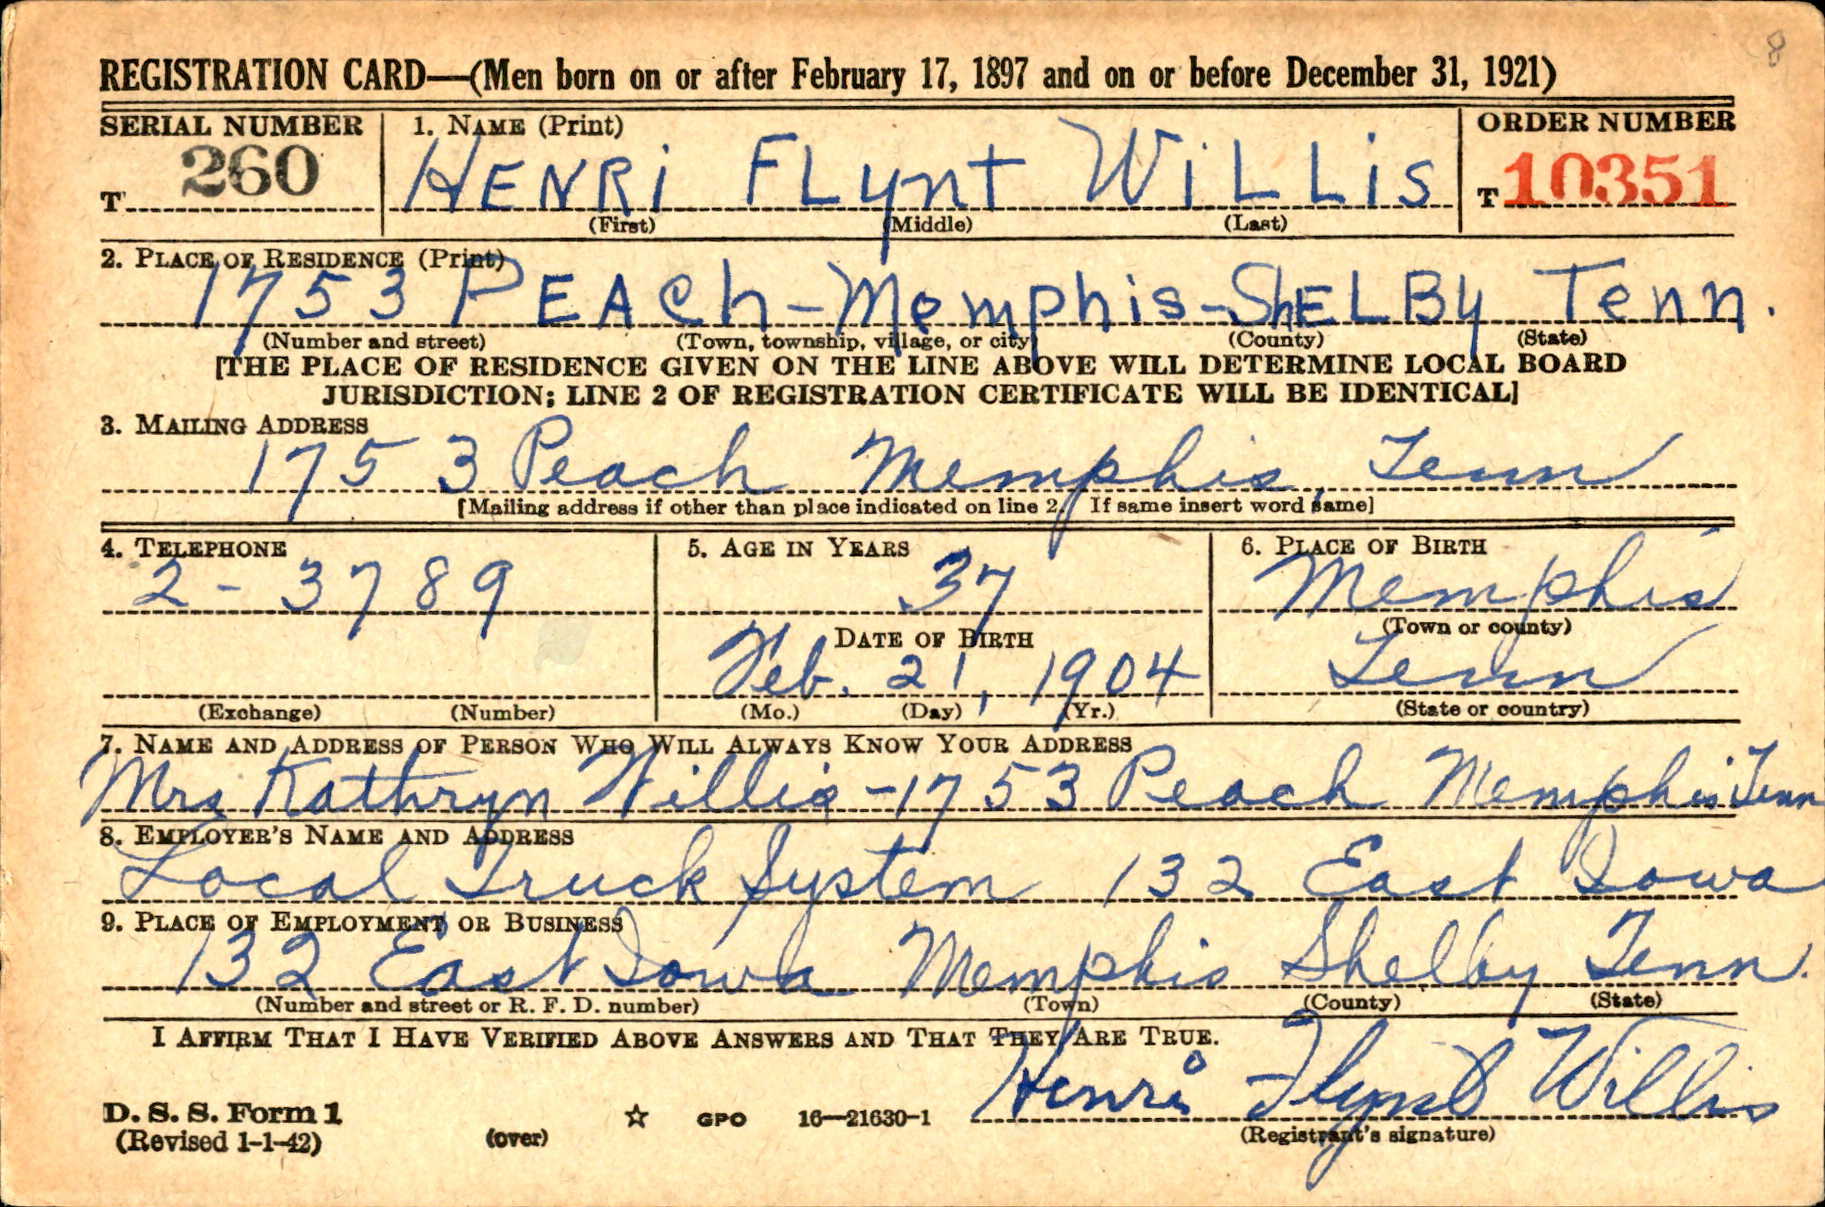 8
REGISTRATION CARD—(Men born on or after February 17, 1897 and on or before December 31, 1921)
SERIAL NUMBER 1. NAME (Print) ORDER NUMBER
T 260 HENRi FLynt WiLLiS T 10351
(First) (Middle) (Last)
2. PLACE OF RESIDENCE (Print)
1753 PEACh - Memphis - ShELBy Tenn.
(Number and street) (Town, township, village, or city) (County) (State)
[THE PLACE OF RESIDENCE GIVEN ON THE LINE ABOVE WILL DETERMINE LOCAL BOARD
JURISDICTION; LINE 2 OF REGISTRATION CERTIFICATE WILL BE IDENTICAL]
3. MAILING ADDRESS
1753 Peach Memphis, Tenn
[Mailing address if other than place indicated on line 2. If same insert word same]
4. TELEPHONE 5. AGE IN YEARS 6. PLACE OF BIRTH
2-3789 37 Memphis
DATE OF BIRTH (Town or county)
Feb. 21, 1904 Tenn
(Exchange) (Number) (Mo.) (Day) (Yr.) (State or country)
7. NAME AND ADDRESS OF PERSON WHO WILL ALWAYS KNOW YOUR ADDRESS
Mrs Kathryn Willis - 1753 Peach Memphis Tenn
8. EMPLOYER'S NAME AND ADDRESS
Local Truck System 132 East Iowa
9. PLACE OF EMPLOYMENT OR BUSINESS
132 East Iowa Memphis Shelby Tenn.
(Number and street or R. F. D. number) (Town) (County) (State)
I AFFIRM THAT I HAVE VERIFIED ABOVE ANSWERS AND THAT THEY ARE TRUE.
Henri Flynt Willis
D. S. S. Form 1 GPO 16—21630-1
(Revised 1-1-42) (over) (Registrant's signature)